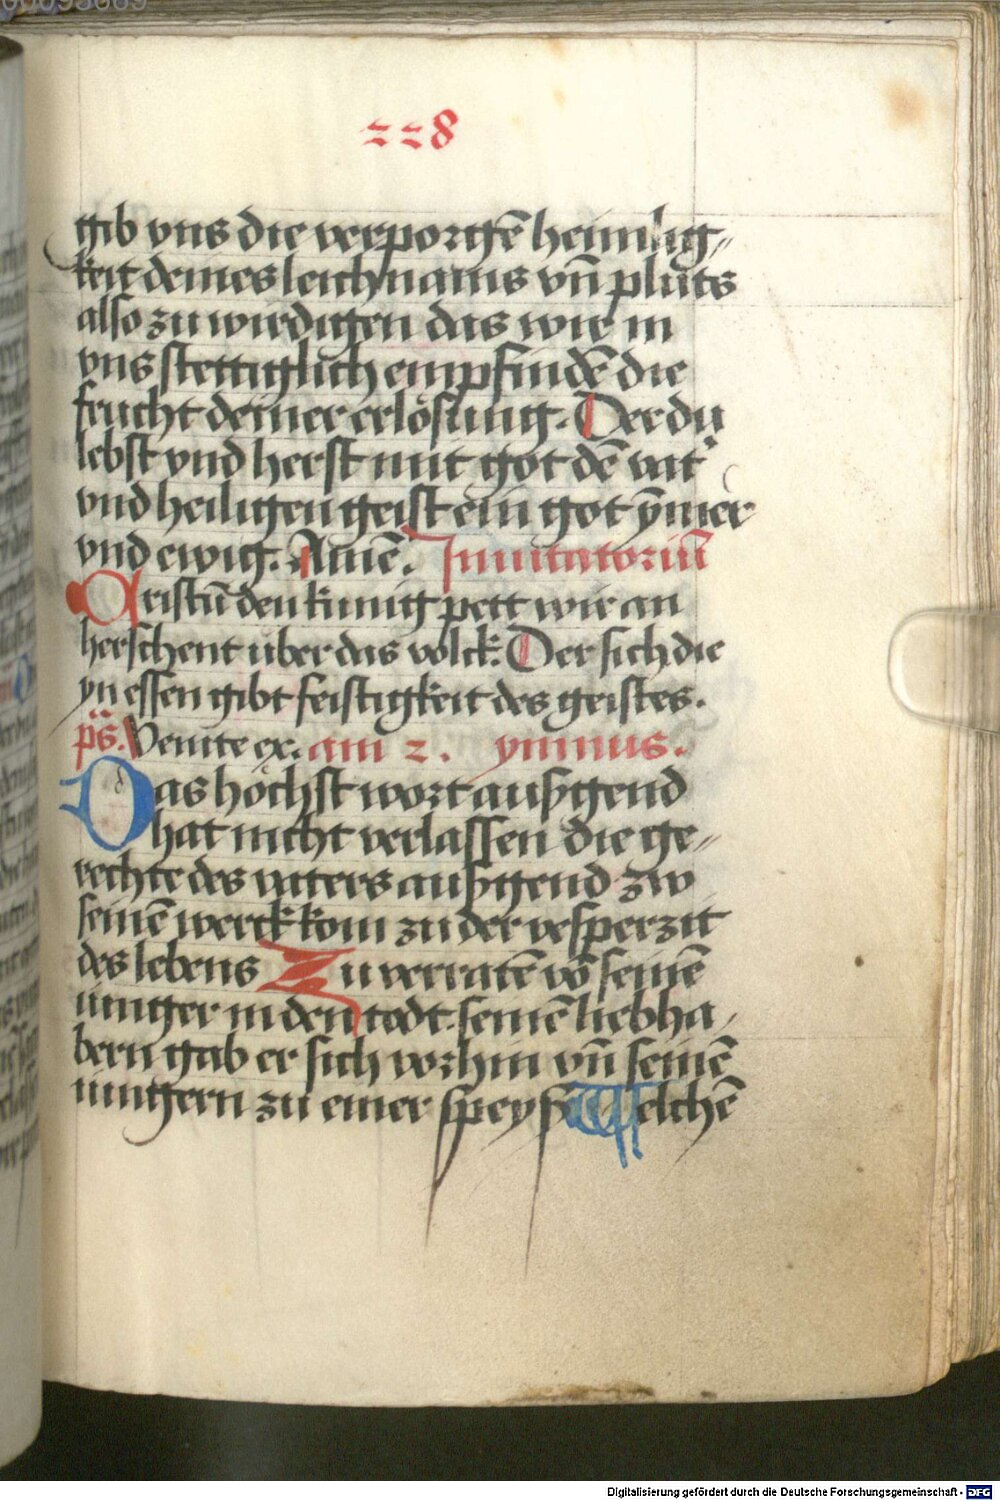 228
gib vns die verporgē heimlig„
keit deines leichnams vn̄ pluts
also zu wirdigen das wir in
vns stettiglich empfindē die
frucht deiner erlösung. Der du
lebst vnd herst mit got dē vat̾
vnd heiligen geist ein got ȳmer
vnd ewig. Amē. Inuitatoriū
Cristū den kunig pett wir an
herschent uber das volck. Der sich die
yn essen gibt feistigkeit des geistes.
ps̄. Venite ex. am 2. ymnus.
Das höchst wort auszgend
hat nicht verlassen die ge„
rechte des vaters auszgend zw
seinē werck kom zu der vesperzit
des lebens Zu verratē vō seinē
iunger in den todt. seinē liebha„
bern gab er sich vorhin vn̄ seinē
iungern zu einer speysz Welchē
Digitalisierung gefördert durch die Deutsche Forschungsgemeinschaft - DFG